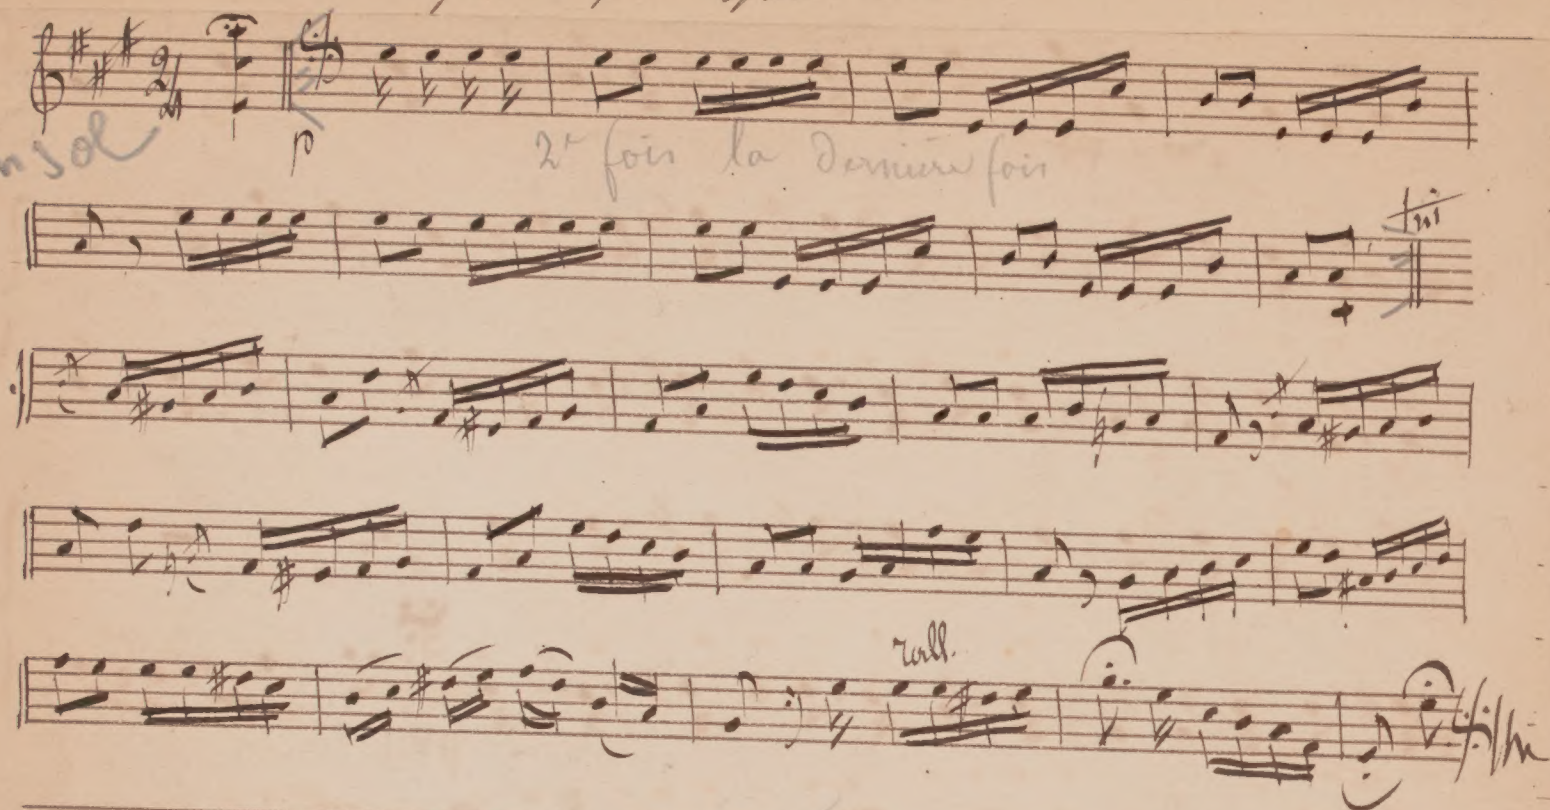 2/4
en sol
p
2e fois la dernière fois
fin
rall.
fin